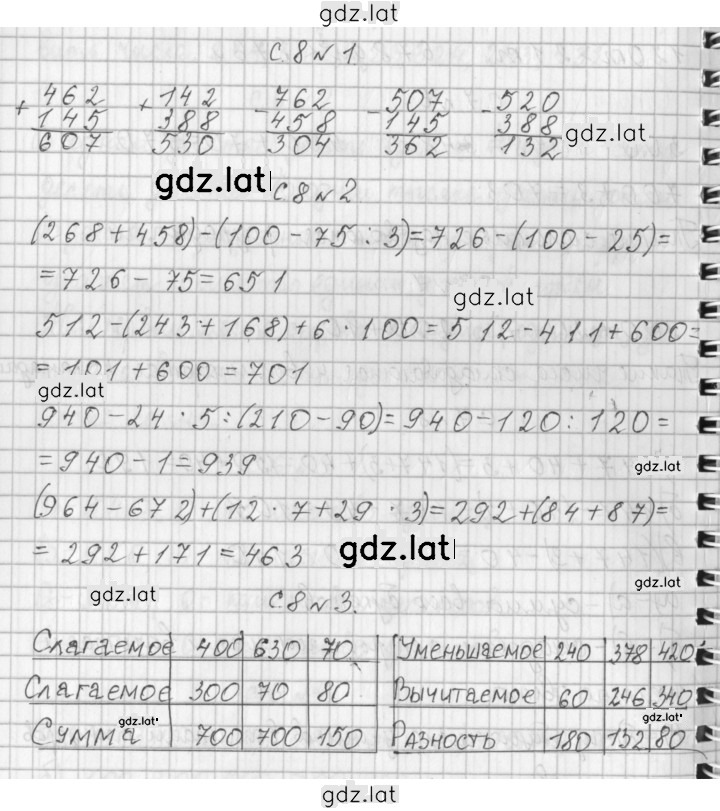 gdz.lat
С 8 № 1
+ 462 + 142 - 762 - 507 - 520
145 388 458 145 388
607 530 304 362 132
gdz.lat
gdz.lat
С 8 № 2
(268+458)-(100-75:3)=726-(100-25)=
=726-75=651
gdz.lat
512-(243+168)+6·100=512-411+600=
=101+600=701
gdz.lat
940-24·5:(210-90)=940-120:120=
=940-1=939
gdz.lat
(964-672)+(12·7+29·3)=292+(84+87)=
=292+171=463
gdz.lat
gdz.lat
gdz.lat
С 8 № 3.
Слагаемое 400 630 70 Уменьшаемое 240 378 420
Слагаемое 300 70 80 Вычитаемое 60 246 340
gdz.lat gdz.lat
Сумма 700 700 150 Разность 180 132 80
gdz.lat